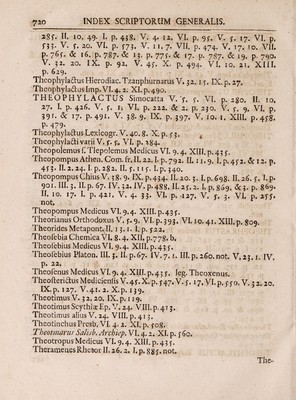 720 INDEX SCRIPTORUM GENERALIS.
285. II. 10. 49. I. p. 438. V. 4. 12. VI. p. 95. V. 5. 17. VI. p.
533. V. 5. 20. VI. p. 573. V. 11. 7. VII. p. 474. V. 17. 10. VII.
p. 765. & 16. p. 787. & 13. p. 775. & 17. p. 787. & 19. p. 790.
V. 32. 20. IX. p. 92. V. 45. X. p. 494. VI. 10. 21. XIII.
p. 629.
Theophylactus Hierodiac. Tzanphurnarus V. 32. 15. IX. p. 27.
Theophylactus Imp. VI. 4. 2. XI. p. 490.
THEOPHYLACTUS Simocatta V. 5. 5. VI. p. 280. II. 10.
27. I. p. 426. V. 5. 1. VI. p. 222. & 2. p. 230. V. 5. 9. VI. p.
391. & 17. p. 491. V. 38. 9. IX. p. 397. V. 10. 1. XIII. p. 458.
p. 479.
Theophylactus Lexicogr. V. 40. 8. X. p. 53.
Theophylacti varii V. 5. 5. VI. p. 284.
Theopolemus f. Tlepolemus Medicus VI. 9. 4. XIII. p. 435.
Theopompus Athen. Com. fr. II. 22. I. p. 792. II. 11. 9. I. p. 452. & 12. p.
453. II. 2. 24. I. p. 282. II. 5. 115. I. p. 340.
Theopompus Chius V. 38. 9. IX. p. 434. II. 20. 3. I. p. 698. II. 26. 5. I. p.
901. III. 3. II. p. 67. IV. 32. IV. p. 488. II. 25. 2. I. p. 869. & 3. p. 869.
II. 10. 17. I. p. 421. V. 4. 33. VI. p. 127. V. 5. 3. VI. p. 255.
not.
Theopompus Medicus VI. 9. 4. XIII. p. 435.
Theorianus Orthodoxus V. 5. 9. VI. p. 393. VI. 10. 41. XIII. p. 809.
Theorides Metapont. II. 13. 1. I. p. 522.
Theosebia Chemica VI. 8. 4. XII. p. 778. b.
Theosebius Medicus VI. 9. 4. XIII. p. 435.
Theosebius Platon. III. 3. II. p. 67. IV. 7. 1. III. p. 260. not. V. 23. 1. IV.
p. 22.
Theosenus Medicus VI. 9. 4. XIII. p. 435. leg. Theoxenus.
Theosterictus Mediciensis V. 45. X. p. 547. V. 5. 17. VI. p. 550. V. 32. 20.
IX. p. 127. V. 41. 2. X. p. 139.
Theotimus V. 32. 20. IX. p. 119.
Theotimus Scythiæ Ep. V. 24. VIII. p. 413.
Theotimus alius V. 24. VIII. p. 413.
Theotinchus Presb. VI. 4. 2. XI. p. 508.
Theotmarus Salisb. Archiep. VI. 4. 2. XI. p. 560.
Theotropus Medicus VI. 9. 4. XIII. p. 435.
Theramenes Rhetor II. 26. 2. I. p. 885. not.
The-